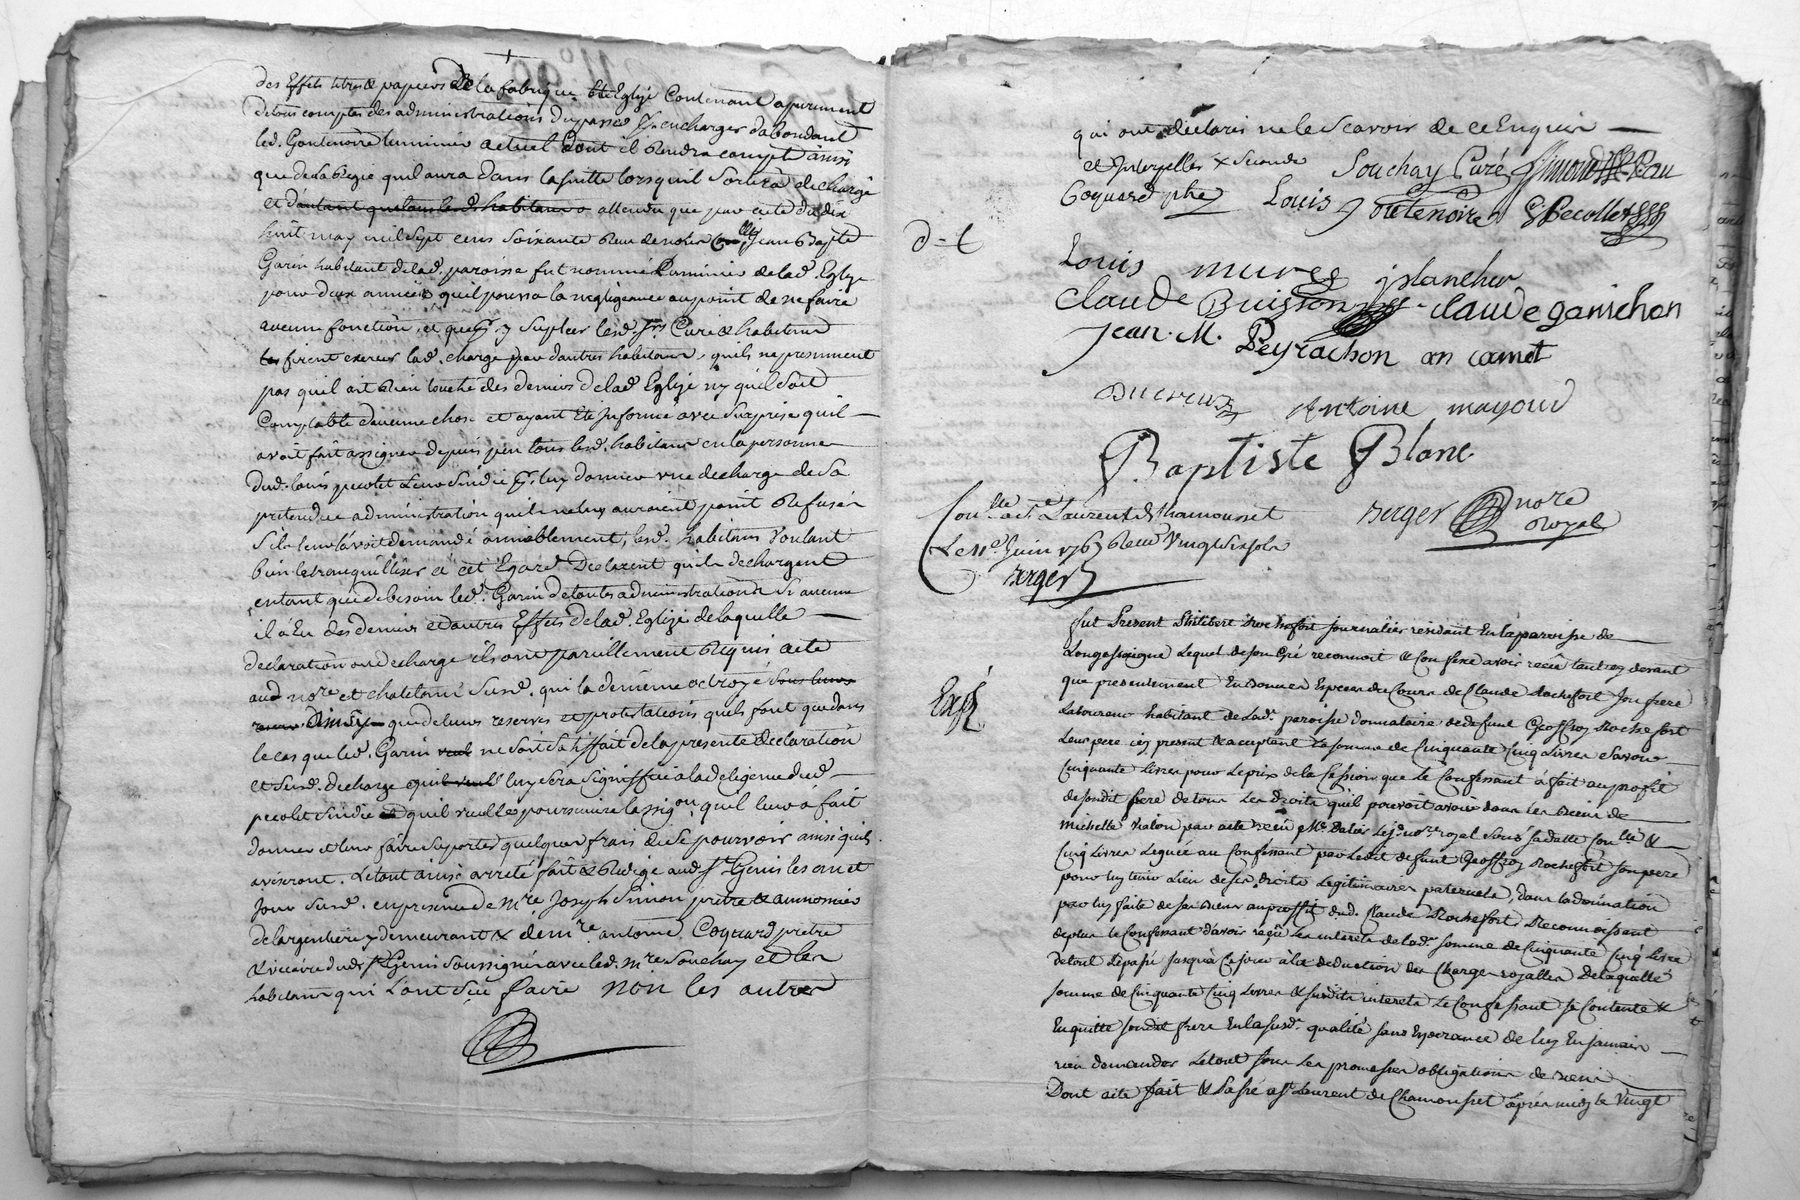 des Effets titres & papiers De la fabrique de Eglise Contenant apurement
de tous comptes des administrations du passé en charger dabondant
led. Goutenoire luminier actuel dont il Rendra compte ainsi
que de la Régie quil aura dans la suitte lorsquil Sortira de charge
et dautant que lesd. habitans attendu que par acte du dix
huit may mil Sept cens Soixante Reçu de notre Jean Bapte
Garin habitant de lad. paroisse fut nommé Luminier de lad. Eglize
pour deux années quil poussa la negligeance au point de ne faire
aucune fonction, et que pr. y Supleer lesd. Srs Curé & habitans
firent exercer lad. charge par dautres habitans, quils ne presument
pas quil ait Rien touché des deniers de lad. Eglize ny quil Soit
Comptable daucune chose et ayant Eté Informé avec Surprise quil
avoit fait assigner depuis peu tous lesd. habitans en la personne
dud. louis pecolet Leur Sindic pr. luy donner une decharge de Sa
pretendue administration quils ne luy auroient point Refusée
Sil la leur avoit demandé amiablement, lesd. habitans Voulant
bien le tranquilliser a cet Egard Declarent quils dechargent
entant que de besoin led. Garin de toutes administrations Si aucune
il a Eu des deniers et autres Effets de lad. Eglize de laquelle
declaration ou decharge ils ont pareillement Requis acte
aud nore et chatelain Susd. qui la demême octroyé
que de leurs reserves et protestations quils font que dans
le cas que led. Garin ne Soit Satisfait de la presente declaration
et Susd. decharge qui luy sera Signiffiée a la deligence dud.
pecolet Sindic et quil veuille poursuivre lassigon quil leur a fait
donner et leur faire Suporter quelques frais de Se pourvoir ainsi quils
aviseront. Le tout ainsi arreté fait & Redigé aud St Genis les an et
Jour Susd. en presence de mre Joseph Simon pretre & aumonier
de largentiere y demeurant & de mre antoine Coquard pretre
& vicaire dud St Genis Soussignés avec led. mre Souchay et les
habitans qui l'ont Sçu faire non les autres
qui ont déclaré ne le Scavoir de ce Enquis
et Interpellés & Seconde Souchay Curé
Coquard ptre Louis Goutenoire Pecollet
d-t
Louis mures plancher
Claude Buisson Claude ganichon
Jean. M. Peyrachon an comet
Ducreux Antoine mayoud
Baptiste Blanc
Conlle a St Laurent de Chamousset
Le 11e Juin 1763 Reçu Vingt Six sols
Berger
Berger nore Royal
fut Present Philibert Rochefort journalier residant En la paroisse de
Longessaigne Lequel de son Gré reconnoit & confesse avoir reçu tant cy devant
que presentement En bonnes Especes du Cours de Claude Rochefort son frere
Laboureur habitant de Lad. paroisse donnataire de defunt Geoffroy Rochefort
Leur pere icy present & acceptant La Somme de Cinquante Cinq Livres Savoir
Cinquante Livres pour Le prix de la Cession que Le Confessant a fait au profit
de sondit frere de tous Les droits quil pouvoit avoir dans les biens de
Michelle Thalon par acte reçu Me. Dalin Lejo. nore royal Sous Sa datte Conlle &
Cinq Livres Leguée au Confessant par Ledit defunt Geoffroy Rochefort Son pere
pour luy tenir Lieu de ses droits Legitimaires paternels, dans la donnation
par luy faite de ses biens au proffit dud. Claude Rochefort, Reconnoissant
deplus le Confessant d'avoir reçu Les interets de lad. somme de Cinquante Cinq Livres
de tout Le passé jusqu'à Ce jour a la deduction des Charges royalles De laquelle
somme de Cinquante Cinq Livres & susdits interets Le Confessant Se Contente &
En quitte sondit frere En la susd. qualité sans Esperance de luy En jamais
rien demander Le tout sous Les promesses obligations de biens
Dont acte fait & Passé a St Laurent de Chamousset Après midy Le Vingt
Exp